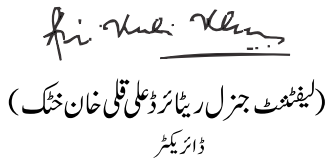 Ali Kuli Khan
(لیفٹننٹ جنرل ریٹائرڈ علی قلی خان خٹک)
ڈائریکٹر